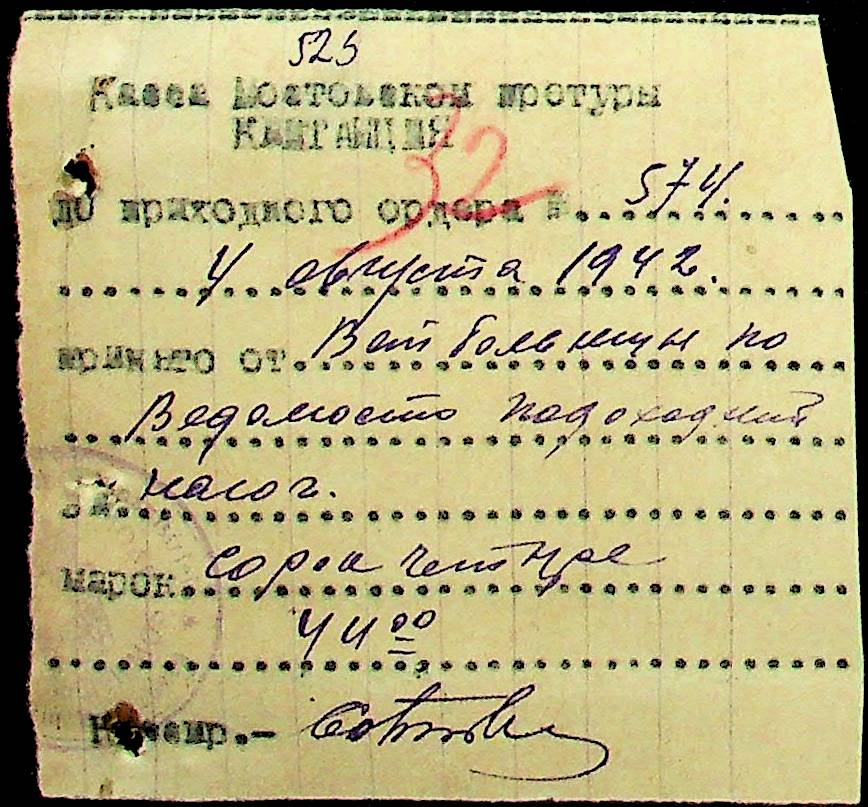 525
Касса Ростовской протуры
КВИТАНЦИЯ
32
до приходного ордера № 574.
4 августа 1942.
принято от Вет больницы по
Ведомости подоходний
налог.
марок сорок четыре
44 00
Кассир.-